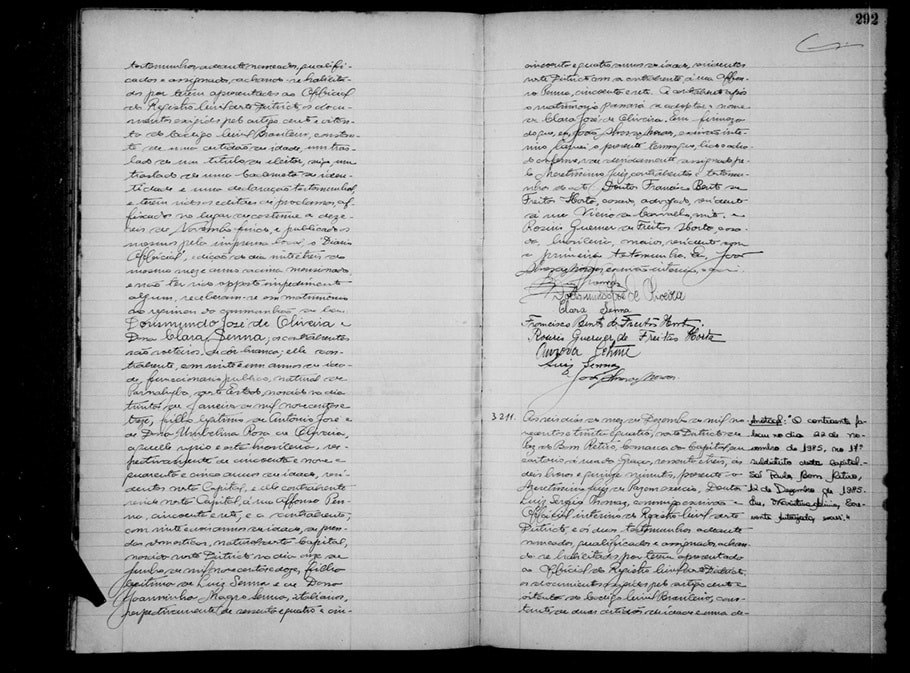 292
testemunhas adeante nomeadas, qualifi-
cadas e assignadas, achando-se habilita-
dos por terem apresentado ao Official
do Registro Civil deste Districto os docu-
mentos exigidos pelo artigo cento e oiten-
ta do Codigo Civil Brasileiro, constan-
te de uma certidão de idade, um tras-
lado de um titulo de eleitor, um
traslado de uma caderneta de iden-
tidade e uma declaração testemunhal,
e terem sido os editaes de proclamas, af-
fixados no lugar do costume a deze-
seis de Novembro findo, e publicados os
mesmos pela imprensa local, o "Diario
Official", edição do dia vinte e seis do
mesmo mez e anno acima mencionado,
e não ter sido opposto impedimento
algum, receberam-se em matrimonio
no regimen de communhão de bens
Dorimundo José de Oliveira e
Dona Clara Senna, os contrahentes
são solteiros, de côr branca; elle con-
trahente, com vinte e um annos de ida-
de, funccionario publico, natural de
Parnahyba, neste Estado, nascido no dia
trinta de Janeiro de mil novecentos e
treze, filho legitimo de Antonio José e
de Dona Umbelina Rosa de Oliveira,
aquelle e esta brasileira, res-
pectivamente de cincoenta e nove e
quarenta e cinco annos de idade, resi-
dentes nesta Capital, e elle contrahente
reside nesta Capital á rua Affonso Pen-
na, cincoenta e sete, e a contrahente,
com vinte e um annos de idade, de pren-
das domesticas, natural desta Capital,
nascida neste Districto no dia onze de
Junho de mil novecentos e doze, filha
legitima de Luiz Senna e de Dona
Joanninha Magro Senna, italianos,
respectivamente de sessenta e quatro e cin-
coenta e quatro annos de idade, residentes
neste Districto com a contrahente á rua Affon-
so Penna, cincoenta e sete. A contrahente após
o matrimonio passará a adoptar o nome
de Clara José de Oliveira. Em firmeza
do que, eu João escrivão inte-
rino lavrei o presente termo, que, lido e acha-
do conforme, vae devidamente assignado pe-
lo Meretissimo Juiz, contrahentes e testemu-
nhas do acto, Doutor Francisco Bento de
Freitas Horta, casado, advogado, residente
á rua Vieira de Carvalho, e
Rosina Guerner de Freitas Horta, casa-
da, brasileira, maior, residente com
a primeira testemunha. Eu, João
escrivão interino, o escrevi.
Dorimundo José de Oliveira
Clara Senna
Francisco Bento de Freitas Horta
Rosina Guerner de Freitas Horta
Luiz Senna
João
3211. Aos seis dias do mez de Dezembro de mil no-
vecentos e trinta e quatro, neste Districto de
Paz do Bom Retiro, Comarca da Capital, em
cartorio á rua da Graça, sessenta e seis, ás
deis horas e quinze minutos, presente o
Meretissimo Juiz de Paz em exercicio, Doutor
Luiz Sergio Thomaz, commigo escrivão e
Official interino do Registro Civil deste
Districto e os duas testemunhas adeante
nomeadas, qualificadas e assignadas, achan-
do-se habilitados por terem apresentado
ao Official do Registro Civil deste Districto,
os documentos exigidos pelo artigo cento e
oitenta do Codigo Civil Brasileiro, cons-
tante de duas certidões de idade e uma de-
Anotação: "O contraente fa-
leceu no dia 22 de no-
vembro de 1985, no 11º
subdistrito desta Capital-
São Paulo, Bom Retiro,
12 de Dezembro de 1985.
Eu, Escre-
vente autorizada, escrevi."